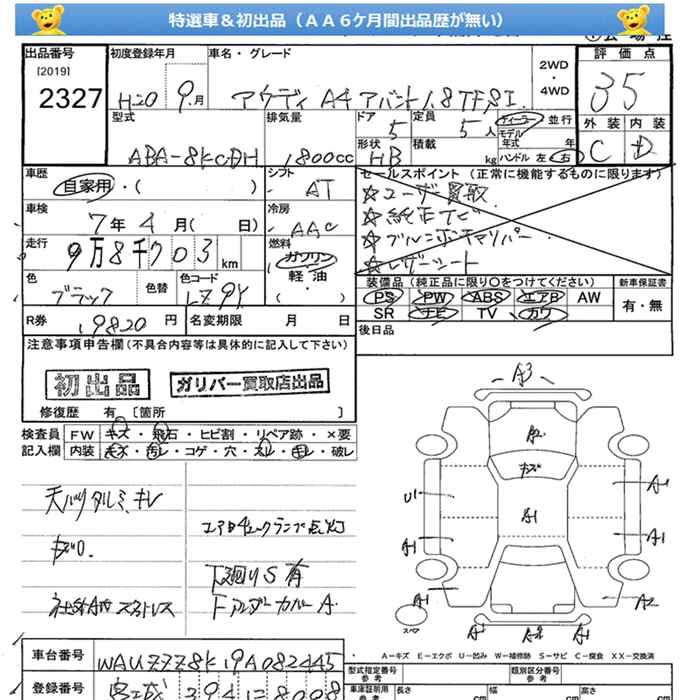 特選車&初出品(AA6ケ月間出品歴が無い)
出品番号 [2019] 2327
初度登録年月 H20 9月
車名・グレード アウディ A4 アバント 1.8TFSI
2WD・4WD
評価点 35
外装 C 内装 D
型式 ABA-8KCDH
排気量 1800cc
ドア 5
定員 5人
形状 HB
積載 kg
ディーラー 並行
モデル年式 年
ハンドル 左 右
車歴 自家用・( )
シフト AT
車検 7年4月( 日)
冷房 AAC
走行 9万8千703km
燃料 ガソリン 軽油・( )
色 ブラック
色替
色コード LZ9Y
セールスポイント(正常に機能するものに限ります)
☆ユーザー買取
☆純正ナビ
☆レザーシート
装備品(純正品に限り○をつけてください)
PS PW ABS エアB AW
SR ナビ TV カワ
新車保証書 有・無
R券 19820円
名変期限 月 日
後日品
注意事項申告欄(不具合内容等は具体的に記入して下さい)
初出品 ガリバー買取店出品
修復歴 有 〔箇所 〕
検査員記入欄
FW キズ・飛石・ヒビ割・リペア跡・×要
内装 キズ・汚レ・コゲ・穴・スレ・キレ・破レ
天バリタルミ、キレ
エアBチェックランプ点灯
下廻りS有
下アンダーカバーA
A3
A2
キズ
A1
U1
A1
A1
A1
A1
A2
A1 A2 A1
スペア
A-キズ E-エクボ U-凹み W-補修跡 S-サビ C-腐食 XX-交換済
車台番号 WAUZZZ8K19A082445
登録番号
型式指定番号参考
類別区分番号参考
車庫証明用参考
長さ cm 幅 cm 高さ cm